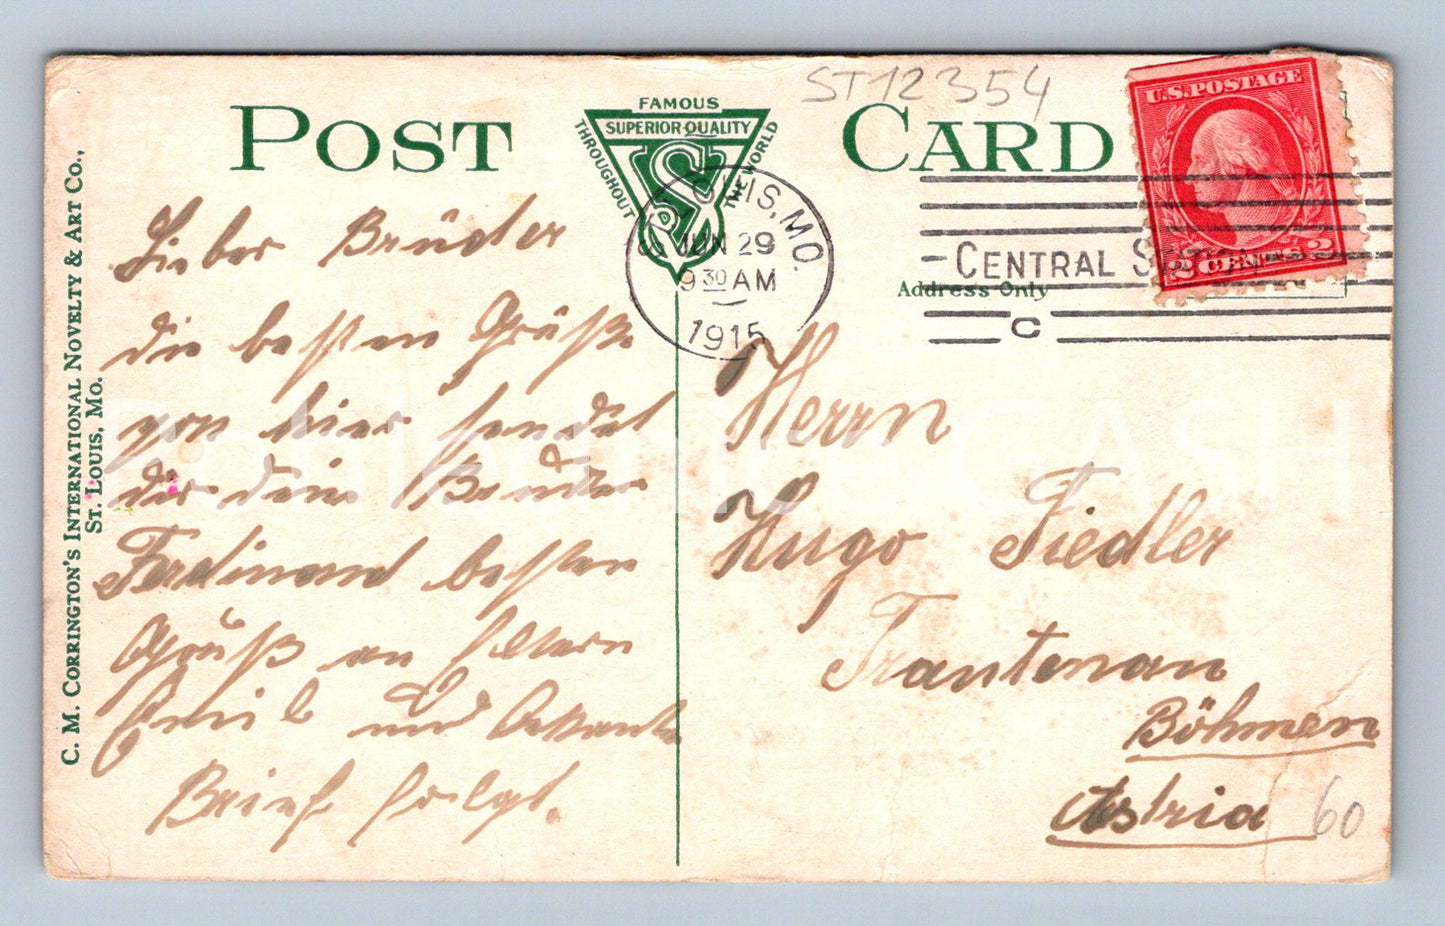 POST CARD
FAMOUS
SUPERIOR QUALITY
THROUGHOUT
THE WORLD
ST12354
U.S. POSTAGE
2 CENTS 2
LOUIS, MO.
JUN 29
9 30 AM
1915
CENTRAL
C
Address Only
C. M. CORRINGTON'S INTERNATIONAL NOVELTY & ART CO.,
ST. LOUIS, MO.
Lieber Brüder
die besten Grüße
von hier sendet
dir dein Bruder
Ferdinand besten
Gruß an Eltern
Emil und Bekannte
Brief folgt.
Herrn
Hugo Fiedler
Trautenau
Böhmen
Astria
60